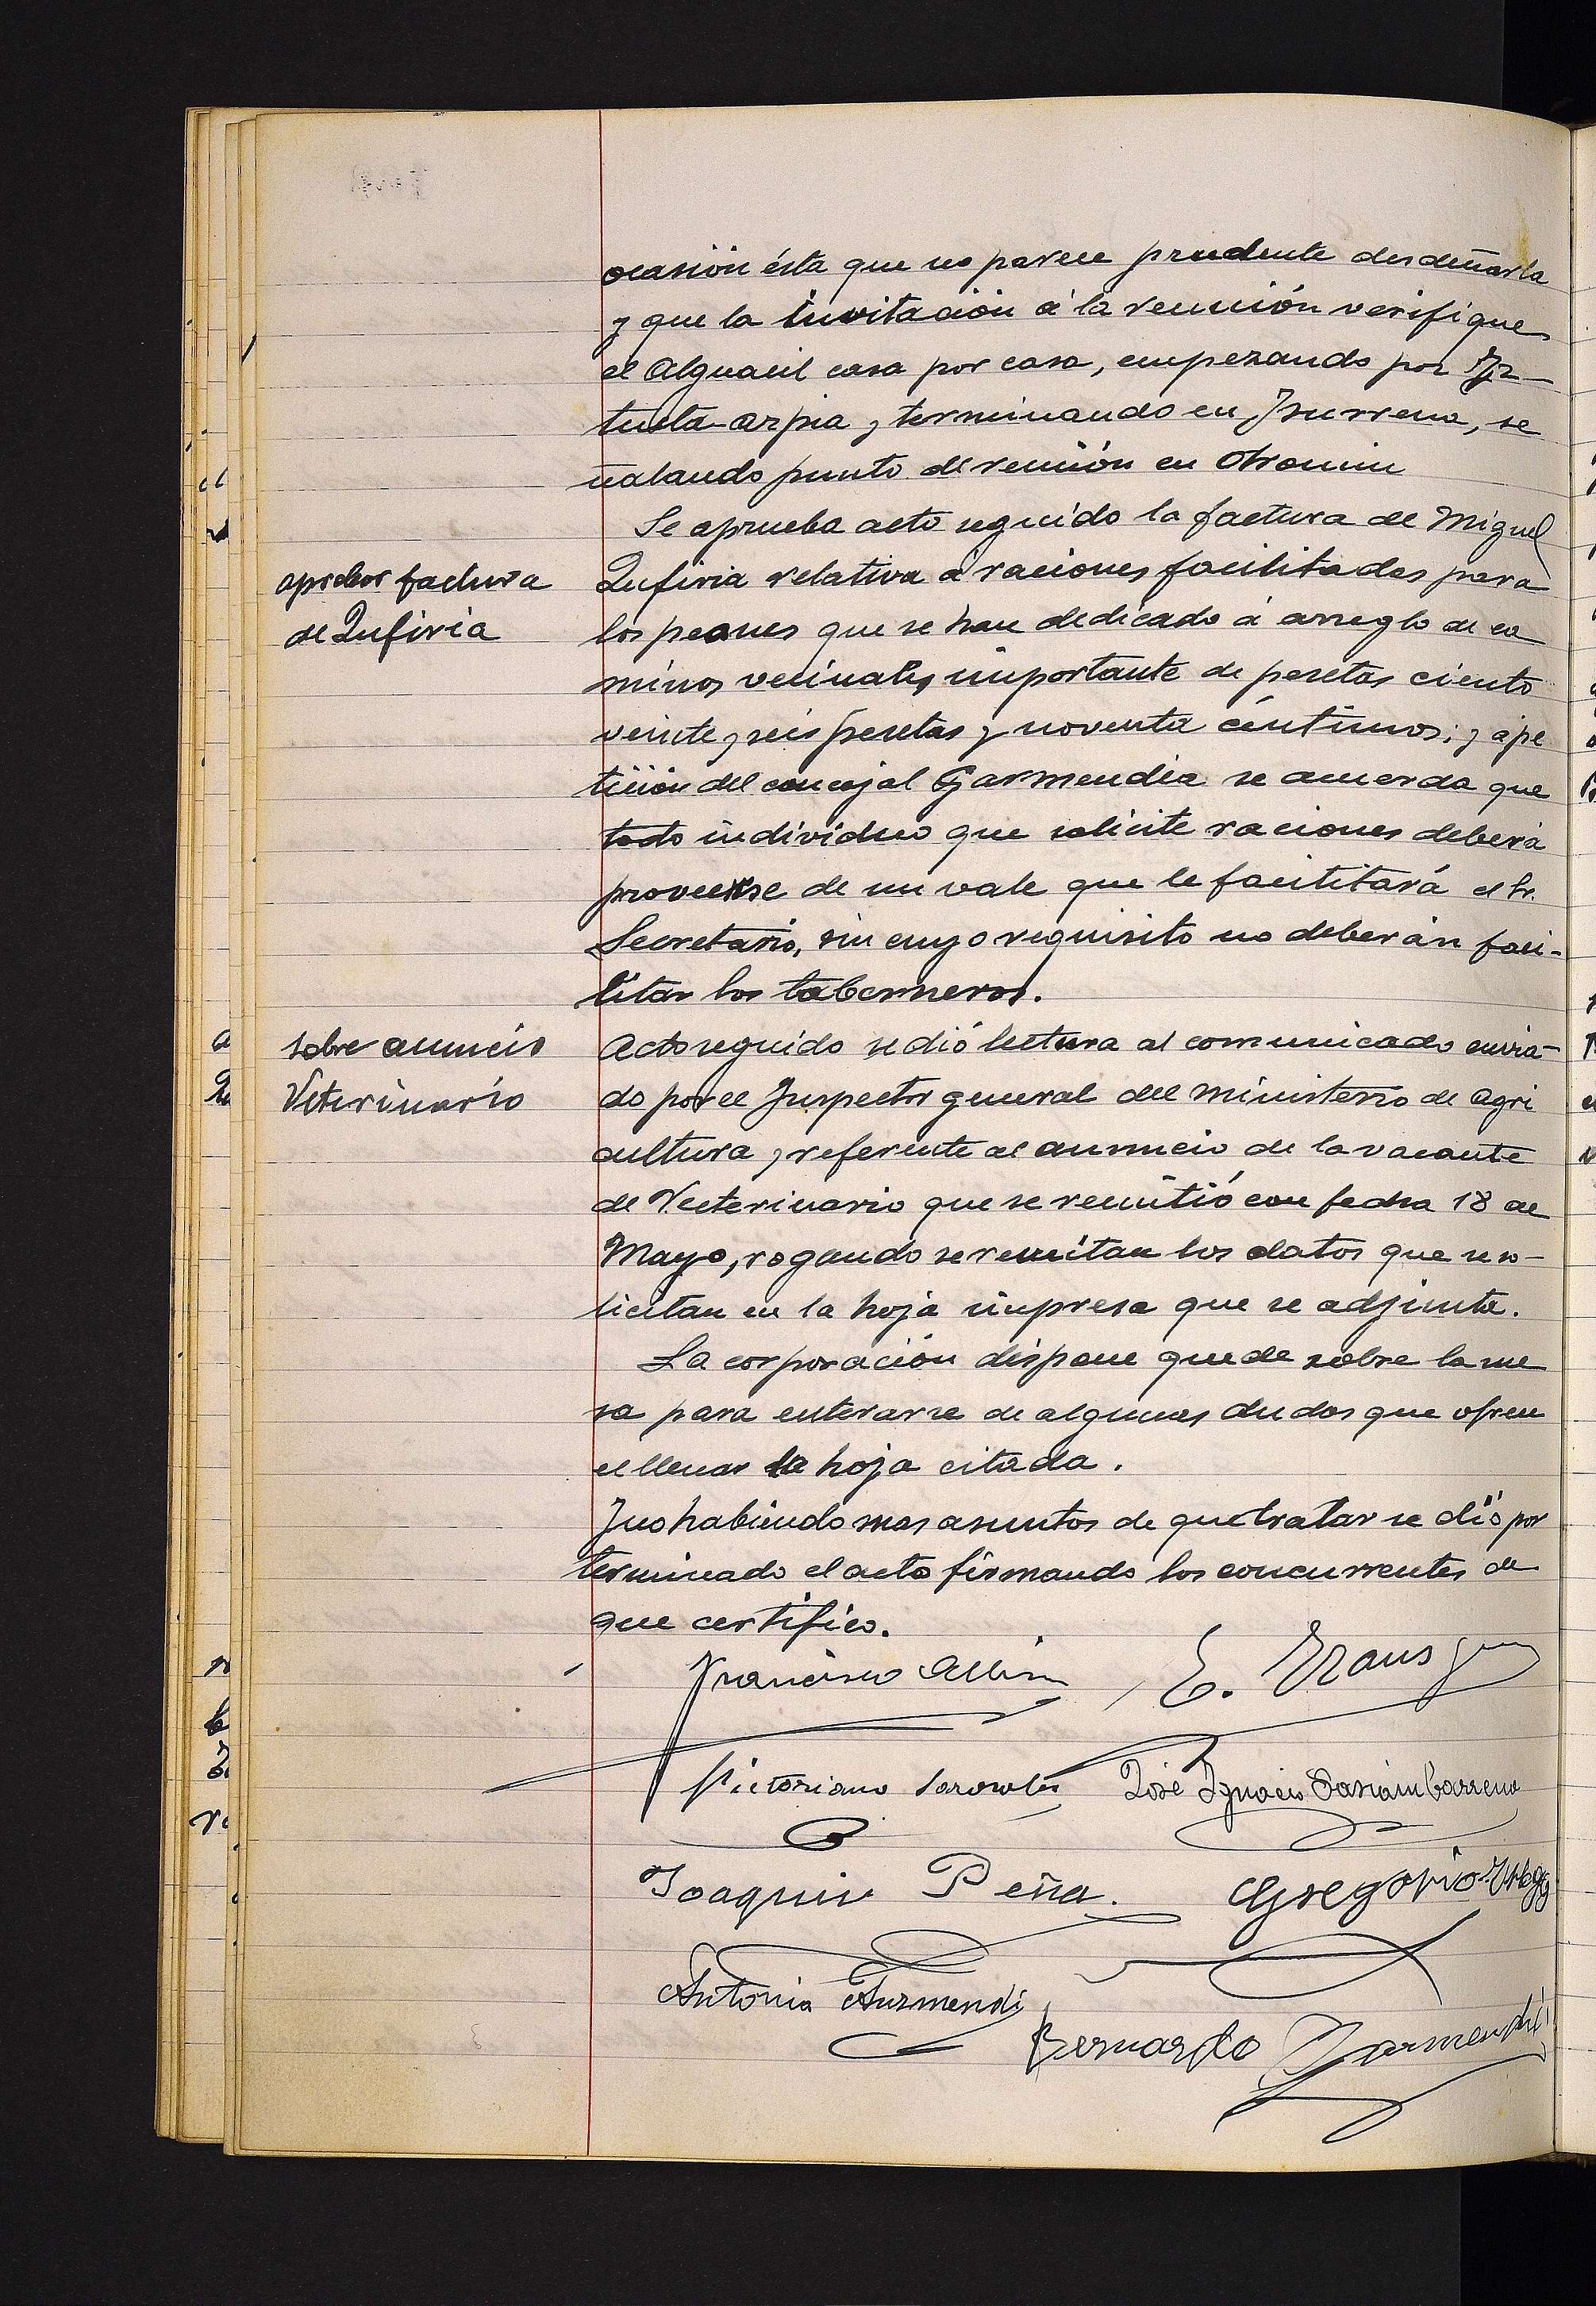 ocasión ésta que no parece prudente desdeñarla
y que la invitación á la reunión verifique
el Alguacil casa por casa, empezando por
y terminando en Isurrena, se
ñalando punto de reunión en
Se aprueba acto seguido la factura de Miguel
aprobar factura
de Zufiria
Zufiria relativa á raciones facilitadas para
los peones que se han dedicado á arreglo de ca
minos vecinales, importante de pesetas ciento
veinte y seis pesetas y noventa céntimos; y á pe
tición del concejal Garmendia se acuerda que
todo individuo que solicite raciones deberá
proveerse de un vale que le facilitará el Sr.
Secretario, sin cuyo requisito no deberán faci-
litar los taberneros.
sobre anuncio
Veterinario
Acto seguido se dió lectura al comunicado envia-
do por el Inspector general del Ministerio de Agri
cultura y referente al anuncio de la vacante
de Veterinario que se remitió con fecha 18 de
Mayo, rogando se remitan los datos que se so-
licitan en la hoja impresa que se adjunta.
La corporación dispone quede sobre la me
sa para enterarse de algunas dudas que ofrece
el llenar la hoja citada.
Y no habiendo mas asuntos de que tratar se dió por
terminado el acto firmando los concurrentes de
que certifico.
Francisco E.
Victoriano José Ignacio
Joaquin Peña. Gregorio
Antonio
Bernardo Garmendia